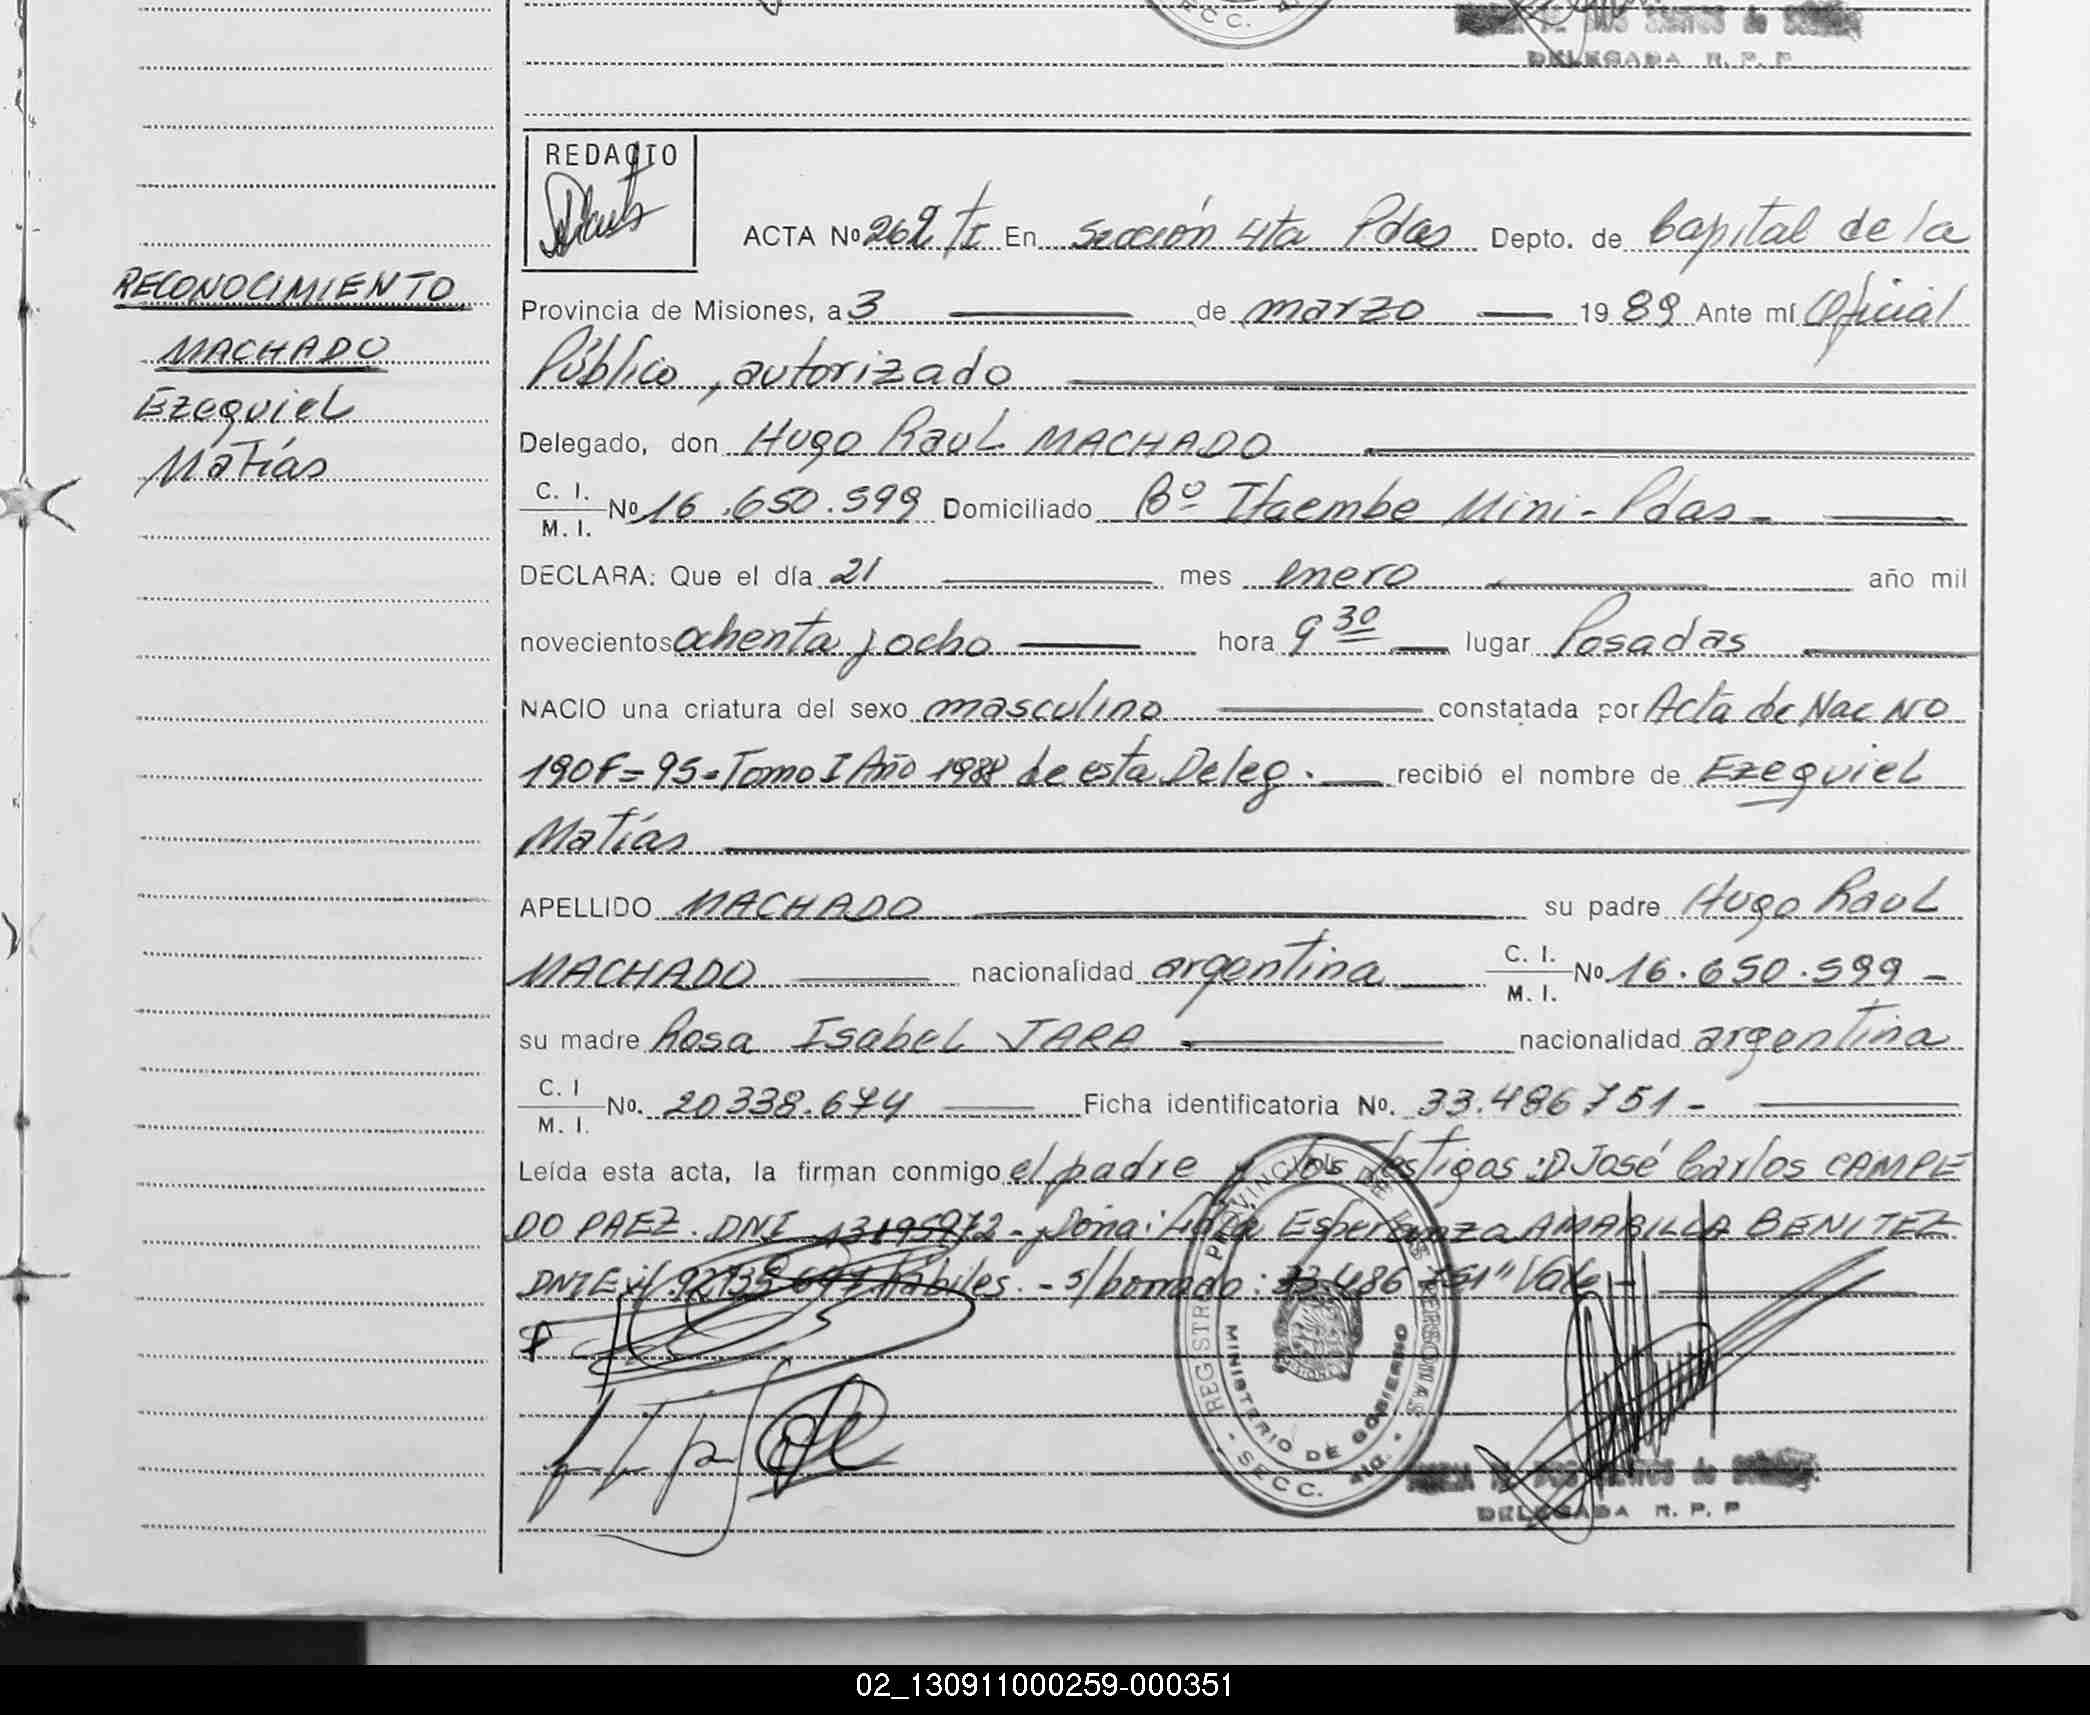 SECC. 4
DELEGADA R. P. P
REDACTO
ACTA Nº 262 tI En Sección 4ta Pdas Depto. de Capital de la
RECONOCIMIENTO
Provincia de Misiones, a 3 de marzo 1989 Ante mí Oficial
MACHADO
Público, autorizado
Ezequiel
Delegado, don Hugo Raul MACHADO
Matías
C. I.
M. I. Nº 16.650.599 Domiciliado Bº Itaembe Mini - Pdas -
DECLARA: Que el día 21 mes enero año mil
novecientos ochenta y ocho hora 9 30 lugar Posadas
NACIO una criatura del sexo masculino constatada por Acta de Nac NO
190 F= 95= Tomo I Año 1988 de esta Deleg. recibió el nombre de Ezequiel
Matías
APELLIDO MACHADO su padre Hugo Raul
MACHADO nacionalidad argentina C. I. M. I. Nº 16.650.599 -
su madre Rosa Isabel JARA nacionalidad argentina
C. I
M. I. No. 20338.674 Ficha identificatoria No. 33.486751 -
Leída esta acta, la firman conmigo el padre y los testigos: D José Carlos CAMPLE
DO PAEZ. DNI 13195972 - y Doña: Esperanza AMARILLA BENITEZ
DNI Ex/ Hábiles. - s/borrado: 33.486 751" Vale -
REGISTRO PROVINCIAL DE LAS PERSONAS
MINISTERIO DE GOBIERNO
- SECC. 4ta. -
DELEGADA R. P. P
02_130911000259-000351